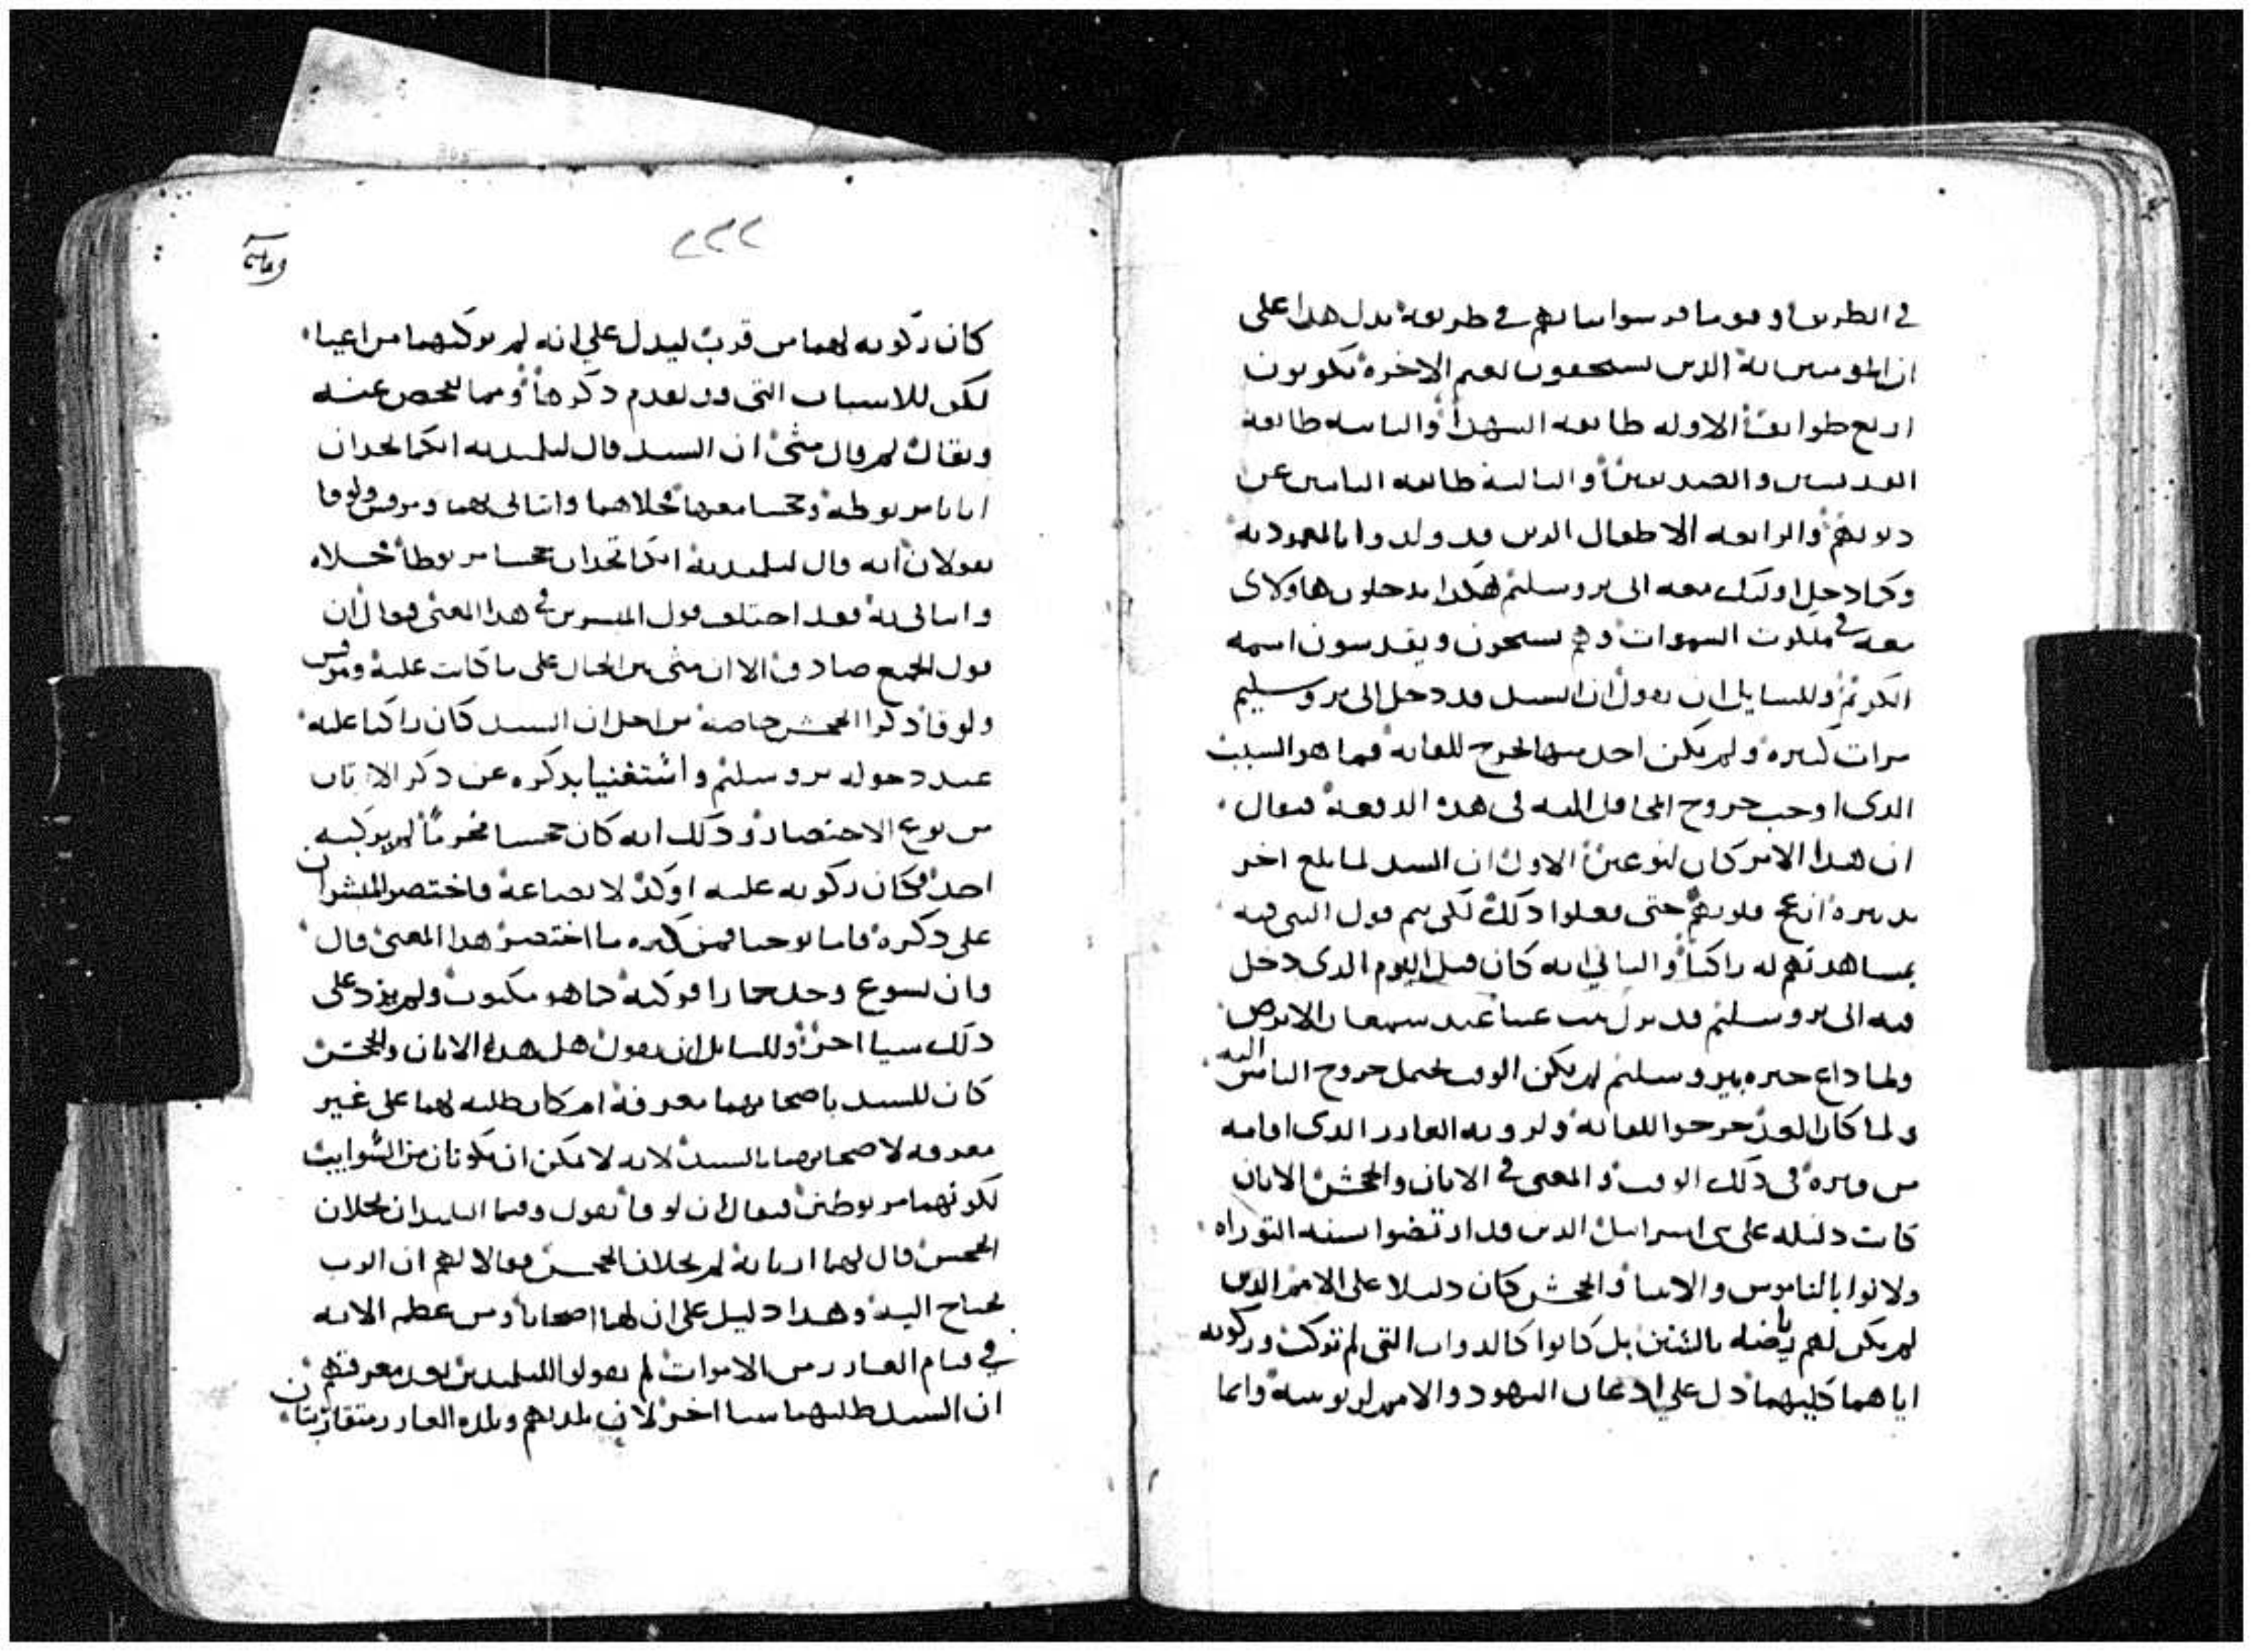 في الطريق وقوما فرسوا ثيابهم في طريقه يدل هدا على
ان المومنين به الدين يستحقون نعيم الاخره يكونون
اربع طوايف الاوله طايفه الشهدا والثانيه طايفة
القديسين والصديقين والثالثه طايفه التايبين عن
دنوبهم والرابعه الاطفال الدين قد ولدوا بالمعموديه
وكما دخل اوليك معه الى يروسليم هكدا يدخلون هاولاى
معه في ملكوت السموات وهم يسبحون ويقدسون اسمه
الكريم وللسايل ان يقول ان السيد قد دخل الى يروسليم
مرات كثيره ولم يكن احد منها يخرج للقايه فما هو السبب
الدى اوجب خروج المحافل اليه في هده الدفعه فيقال
ان هدا الامر كان لنوعين الاول ان السيد لما بلغ اخر
تدبيره ازعج قلوبهم حتى فعلوا دلك لكي يتم قول النبي فيه
بمشاهدتهم له راكبا والثاني انه كان قبل اليوم الدى دخل
فيه الى يروسليم قد نزل بيت عنيا عند سمعان الابرص
ولما داع خبره بيروسليم لم يكن الوقت يحتمل خروج الناس اليه
ولما كان الغد خرجوا للقايه ولرويه العازر الدى اقامه
من قبره في دلك الوقت والمعنى في الاتان والجحش الاتان
كانت دليله على بني اسراييل الدين قد ارتضوا بسنه التوراه
ولانوا بالناموس والانبيا والجحش كان دليلا على الامم الدين
لم يكن لهم رياضه بالسنن بل كانوا كالدواب التي لم تركب وركوبه
اياهما كليهما دل على ادعان اليهود والامم لربوبيته وانما
٢٢٢
كان ركوبه لهما من قرب ليدل على انه لم يركبهما من اعيا
لكن للاسباب التى قد تقدم دكرها ومما يفحص عنه
ويقال لم قال متى ان السيد قال لتلميديه انكما تجدان
اتانا مربوطه وجحشا معها فحلاهما واتيانى بهما ومرقس ولوقا
يقولان انه قال لتلميديه انكما تجدان جحشا مربوطا فحلاه
واتيانى به فقد اختلف قول المبشرين في هدا المعنى فيقال ان
قول الجميع صادق الا ان متى بين الحال على ما كانت عليه ومرقس
ولوقا دكرا الجحش خاصه من اجل ان السيد كان راكبا عليه
عند دخوله يروسليم واستغنيا بدكره عن دكر الاتان
من نوع الاختصار ودلك انه كان جحشا محروما لم يركبه
احد فكان ركوبه عليه اوكد لاتضاعه فاختصر المبشران
على دكره فاما يوحنا فمن كثره ما اختصر هدا المعنى قال
وان يسوع وجد حمارا فركبه كما هو مكتوب ولم يزد على
دلك شيا اخر وللسايل ان يقول هل هده الاتان والجحش
كان للسيد باصحابهما معرفة ام كان طلبه لهما على غير
معرفه لاصحابهما بالسيد لانه لا يمكن ان يكونان من السوايب
لكونهما مربوطين فيقال ان لوقا يقول وفيما التلميدان يحلان
الجحش قال لهما اربابه لم تحلان الجحش فقالا لهم ان الرب
يحتاج اليه وهدا دليل على ان لهما اصحابا ومن عظم الايه
في قيام العازر من الاموات لم يقولوا للتلميدين بعد معرفتهم
ان السيد طلبهما شيا اخر لان بلدهم وبلده العازر متقاربتان